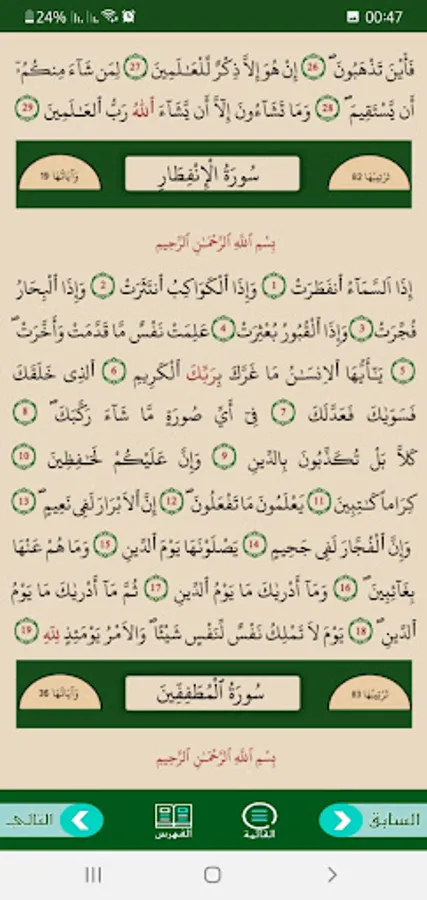 24% 00:47
فَأَيْنَ تَذْهَبُونَۖ 26 إِنْ هُوَ إِلاَّ ذِكْرٌ لِّلْعَٰلَمِينَ 27 لِمَن شَآءَ مِنكُمُۥٓ
أَن يَّسْتَقِيمَۖ 28 وَمَا تَشَآءُونَ إِلَّآ أَن يَّشَآءَ اَ۬للَّهُ رَبُّ اُ۬لْعَٰلَمِينَ 29
وَآيَاتُهَا 19 سُورَةُ الْإِنْفِطَارِ تَرْتِيبُهَا 82
بِسْمِ اللَّهِ الرَّحْمَٰنِ الرَّحِيمِ
إِذَا اَ۬لسَّمَآءُ اُ۪نفَطَرَتْ 1 وَإِذَا اَ۬لْكَوَاكِبُ اُ۪نتَثَرَتْ 2 وَإِذَا اَ۬لْبِحَارُ
فُجِّرَتْ 3 وَإِذَا اَ۬لْقُبُورُ بُعْثِرَتْ 4 عَلِمَتْ نَفْسٌ مَّا قَدَّمَتْ وَأَخَّرَتْۖ
5 يَٰٓأَيُّهَا اَ۬لِانسَٰنُ مَا غَرَّكَ بِرَبِّكَ اَ۬لْكَرِيمِ 6 اِ۬لذِى خَلَقَكَ
فَسَوّ۪يٰكَ فَعَدَّلَكَ 7 فِىٓ أَىِّ صُورَةٍ مَّا شَآءَ رَكَّبَكَۖ 8
كَلاَّ بَلْ تُكَذِّبُونَ بِالدِّينِ 9 وَإِنَّ عَلَيْكُمْ لَحَٰفِظِينَ 10
كِرَاماً كَٰتِبِينَ 11 يَعْلَمُونَ مَا تَفْعَلُونَۖ 12 إِنَّ اَ۬لَابْرَارَ لَفِى نَعِيمٍۖ 13
وَإِنَّ اَ۬لْفُجَّارَ لَفِى جَحِيمٍ 14 يَصْلَوْنَهَا يَوْمَ اَ۬لدِّينِ 15 وَمَا هُمْ عَنْهَا
بِغَآئِبِينَۖ 16 وَمَآ أَدْر۪يٰكَ مَا يَوْمُ اُ۬لدِّينِ 17 ثُمَّ مَآ أَدْر۪يٰكَ مَا يَوْمُ
اُ۬لدِّينِۖ 18 يَوْمَ لاَ تَمْلِكُ نَفْسٌ لِّنَفْسٍ شَيْـٔاًۖ وَالَامْرُ يَوْمَئِذٍ لِلهِ 19
وَآيَاتُهَا 36 سُورَةُ الْمُطَفِّفِينَ تَرْتِيبُهَا 83
بِسْمِ اللَّهِ الرَّحْمَٰنِ الرَّحِيمِ
السابق القائمة الفهرس التالي